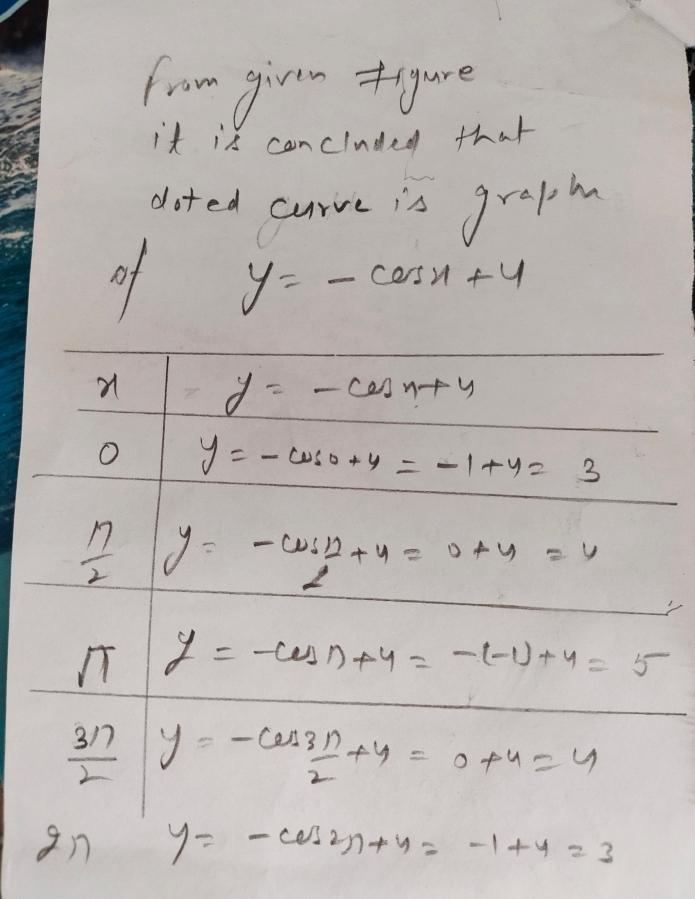 from given figure
it is concluded that
doted curve is graph
of y = - cosx + 4
x y = - cosx + 4
0 y = - cos0 + 4 = -1 + 4 = 3
π/2 y = - cosπ/2 + 4 = 0 + 4 = 4
π y = - cosπ + 4 = -(-1) + 4 = 5
3π/2 y = - cos3π/2 + 4 = 0 + 4 = 4
2π y = - cos2π + 4 = -1 + 4 = 3